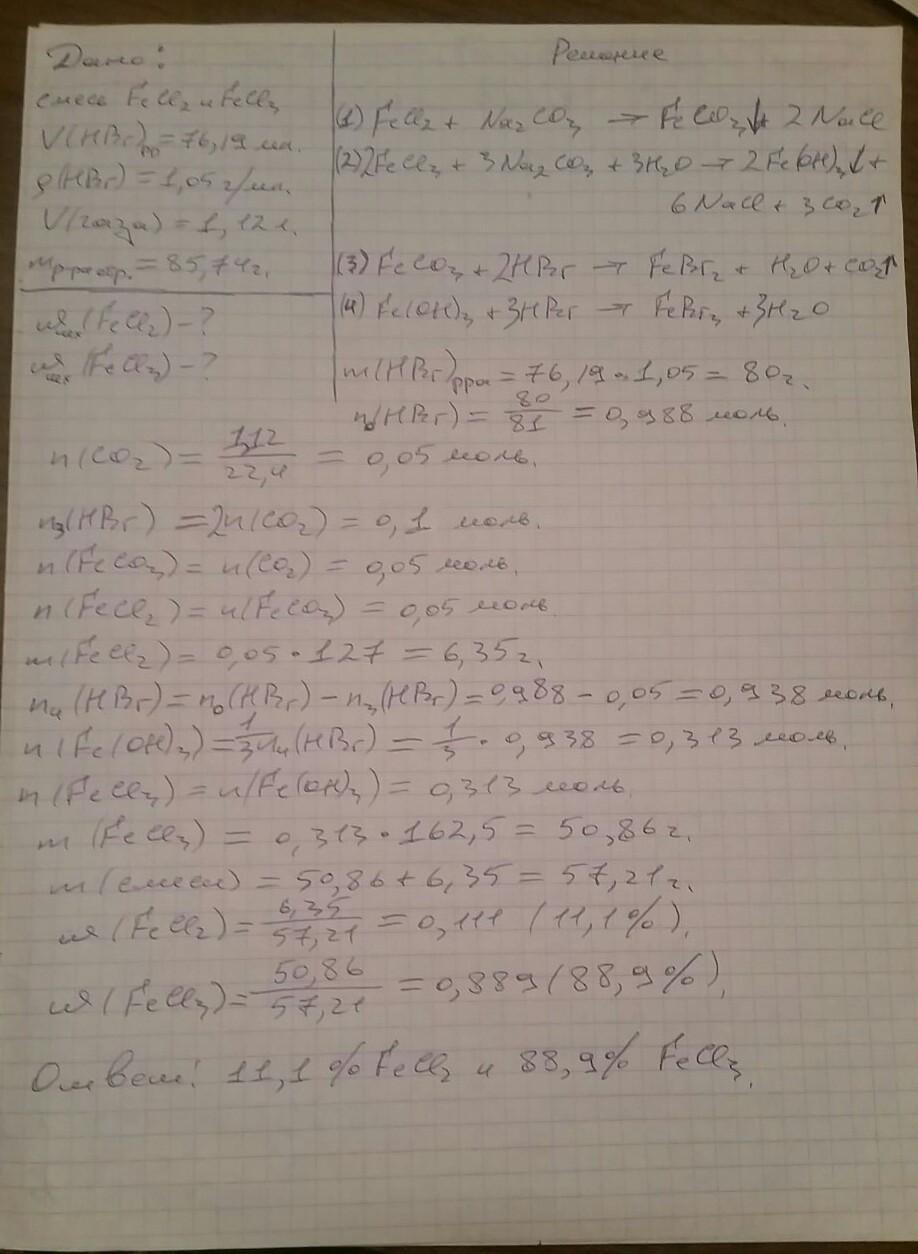 Дано:
смесь FeCl₂ и FeCl₃
V(HBr)рр = 76,19 мл.
ρ(HBr) = 1,05 г/мл.
V(газа) = 1,12 л.
= 85,74 г.
(FeCl₂) – ?
(FeCl₃) – ?
Решение
(1) FeCl₂ + Na₂CO₃ → FeCO₃↓ + 2NaCl
(2) 2FeCl₃ + 3Na₂CO₃ + 3H₂O → 2Fe(OH)₃↓ +
6NaCl + 3CO₂↑
(3) FeCO₃ + 2HBr → FeBr₂ + H₂O + CO₂↑
(4) Fe(OH)₃ + 3HBr → FeBr₃ + 3H₂O
m(HBr)рра = 76,19 · 1,05 = 80 г.
n₀(HBr) = 80/81 = 0,988 моль.
n(CO₂) = 1,12/22,4 = 0,05 моль.
n₃(HBr) = 2n(CO₂) = 0,1 моль.
n(FeCO₃) = n(CO₂) = 0,05 моль.
n(FeCl₂) = n(FeCO₃) = 0,05 моль
m(FeCl₂) = 0,05 · 127 = 6,35 г.
n₄(HBr) = n₀(HBr) – n₃(HBr) = 0,988 – 0,05 = 0,938 моль.
n(Fe(OH)₃) = 1/3 n₄(HBr) = 1/3 · 0,938 = 0,313 моль.
n(FeCl₃) = n(Fe(OH)₃) = 0,313 моль.
m(FeCl₃) = 0,313 · 162,5 = 50,86 г.
m(смеси) = 50,86 + 6,35 = 57,21 г.
ω(FeCl₂) = 6,35/57,21 = 0,111 (11,1%).
ω(FeCl₃) = 50,86/57,21 = 0,889 (88,9%).
Ответ: 11,1% FeCl₂ и 88,9% FeCl₃.